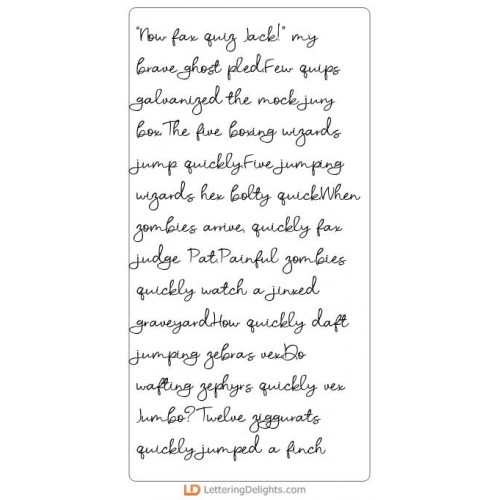 "Now fax quiz Jack!" my
brave ghost pled.Few quips
galvanized the mock jury
box.The five boxing wizards
jump quickly.Five jumping
wizards hex bolty quick.When
zombies arrive, quickly fax
judge Pat.Painful zombies
quickly watch a jinxed
graveyard.How quickly daft
jumping zebras vex.Do
wafting zephyrs quickly vex
Jumbo?Twelve ziggurats
quickly jumped a finch
LD LetteringDelights.com